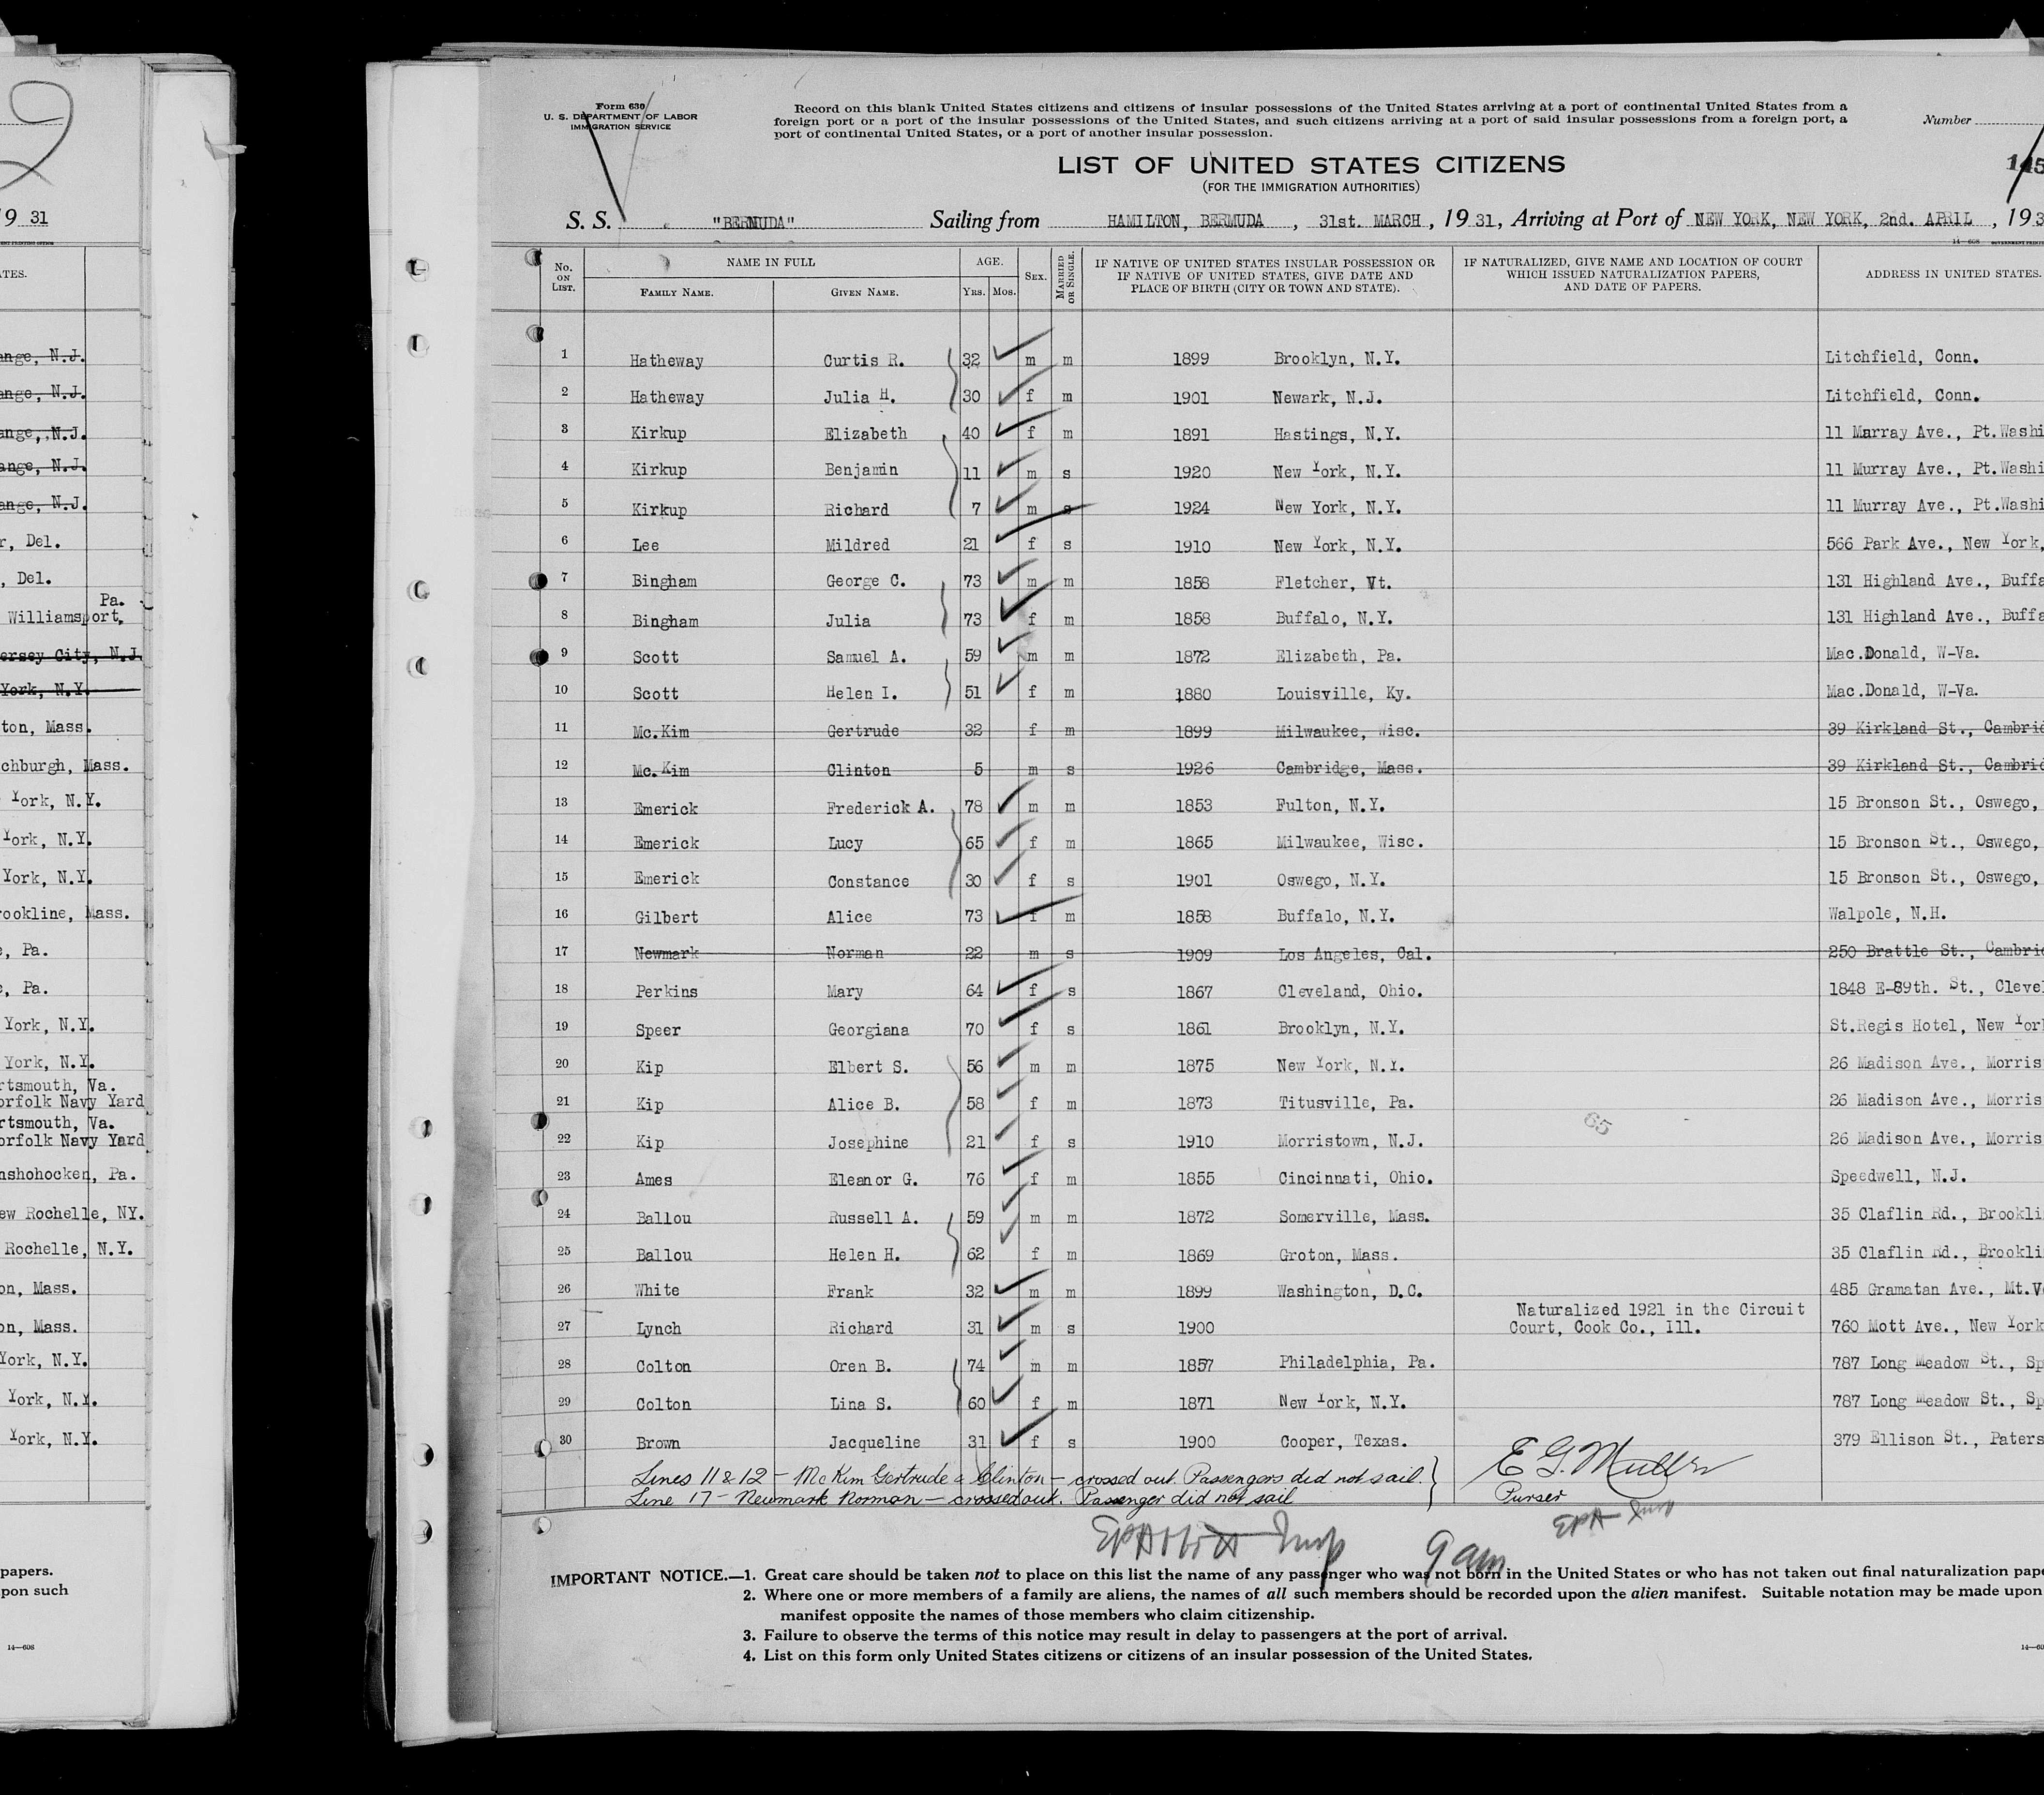 19 31
TES.
ange, N.J.
ange, N.J.
ange, N.J.
ange, N.J.
ange, N.J.
r, Del.
, Del.
Pa.
Williamsport,
ersey City, N.J.
York, N.Y.
ton, Mass.
chburgh, Mass.
York, N.Y.
York, N.Y.
York, N.Y.
rookline, Mass.
, Pa.
, Pa.
York, N.Y.
York, N.Y.
rtsmouth, Va.
orfolk Navy Yard
rtsmouth, Va.
orfolk Navy Yard
nshohocken, Pa.
ew Rochelle, NY.
Rochelle, N.Y.
on, Mass.
on, Mass.
York, N.Y.
York, N.Y.
York, N.Y.
papers.
pon such
14—608
Form 630
U. S. DEPARTMENT OF LABOR
IMMIGRATION SERVICE
Record on this blank United States citizens and citizens of insular possessions of the United States arriving at a port of continental United States from a
foreign port or a port of the insular possessions of the United States, and such citizens arriving at a port of said insular possessions from a foreign port, a
port of continental United States, or a port of another insular possession.
Number
LIST OF UNITED STATES CITIZENS
145
(FOR THE IMMIGRATION AUTHORITIES)
S. S. "BERMUDA" Sailing from HAMILTON, BERMUDA , 31st. MARCH , 19 31, Arriving at Port of NEW YORK, NEW YORK, 2nd. APRIL , 193
14—608
No. ON LIST. NAME IN FULL AGE. SEX. MARRIED OR SINGLE. IF NATIVE OF UNITED STATES INSULAR POSSESSION OR IF NATIVE OF UNITED STATES, GIVE DATE AND PLACE OF BIRTH (CITY OR TOWN AND STATE). IF NATURALIZED, GIVE NAME AND LOCATION OF COURT WHICH ISSUED NATURALIZATION PAPERS, AND DATE OF PAPERS. ADDRESS IN UNITED STATES.
FAMILY NAME. GIVEN NAME. YRS. MOS.
1 Hatheway Curtis R. 32 m m 1899 Brooklyn, N.Y. Litchfield, Conn.
2 Hatheway Julia H. 30 f m 1901 Newark, N.J. Litchfield, Conn.
3 Kirkup Elizabeth 40 f m 1891 Hastings, N.Y. 11 Murray Ave., Pt.Washi
4 Kirkup Benjamin 11 m s 1920 New York, N.Y. 11 Murray Ave., Pt.Washi
5 Kirkup Richard 7 m s 1924 New York, N.Y. 11 Murray Ave., Pt.Washi
6 Lee Mildred 21 f s 1910 New York, N.Y. 566 Park Ave., New York,
7 Bingham George C. 73 m m 1858 Fletcher, Vt. 131 Highland Ave., Buffa
8 Bingham Julia 73 f m 1858 Buffalo, N.Y. 131 Highland Ave., Buffa
9 Scott Samuel A. 59 m m 1872 Elizabeth, Pa. Mac.Donald, W-Va.
10 Scott Helen I. 51 f m 1880 Louisville, Ky. Mac.Donald, W-Va.
11 Mc.Kim Gertrude 32 f m 1899 Milwaukee, Wisc. 39 Kirkland St., Cambrid
12 Mc.Kim Clinton 5 m s 1926 Cambridge, Mass. 39 Kirkland St., Cambrid
13 Emerick Frederick A. 78 m m 1853 Fulton, N.Y. 15 Bronson St., Oswego,
14 Emerick Lucy 65 f m 1865 Milwaukee, Wisc. 15 Bronson St., Oswego,
15 Emerick Constance 30 f s 1901 Oswego, N.Y. 15 Bronson St., Oswego,
16 Gilbert Alice 73 f m 1858 Buffalo, N.Y. Walpole, N.H.
17 Newmark Norman 22 m s 1909 Los Angeles, Cal. 250 Brattle St., Cambrid
18 Perkins Mary 64 f s 1867 Cleveland, Ohio. 1848 E-89th. St., Clevel
19 Speer Georgiana 70 f s 1861 Brooklyn, N.Y. St.Regis Hotel, New York
20 Kip Elbert S. 56 m m 1875 New York, N.Y. 26 Madison Ave., Morris
21 Kip Alice B. 58 f m 1873 Titusville, Pa. 26 Madison Ave., Morris
22 Kip Josephine 21 f s 1910 Morristown, N.J. 26 Madison Ave., Morris
65
23 Ames Eleanor G. 76 f m 1855 Cincinnati, Ohio. Speedwell, N.J.
24 Ballou Russell A. 59 m m 1872 Somerville, Mass. 35 Claflin Rd., Brookli
25 Ballou Helen H. 62 f m 1869 Groton, Mass. 35 Claflin Rd., Brookli
26 White Frank 32 m m 1899 Washington, D.C. 485 Gramatan Ave., Mt.Ve
27 Lynch Richard 31 m s 1900 Naturalized 1921 in the Circuit Court, Cook Co., Ill. 760 Mott Ave., New York
28 Colton Oren B. 74 m m 1857 Philadelphia, Pa. 787 Long Meadow St., Sp
29 Colton Lina S. 60 f m 1871 New York, N.Y. 787 Long Meadow St., Sp
30 Brown Jacqueline 31 f s 1900 Cooper, Texas. 379 Ellison St., Paters
Lines 11 & 12 – McKim Gertrude & Clinton – crossed out. Passengers did not sail.
Line 17 – Newmark Norman – crossed out. Passenger did not sail
E G. Muller
Purser
9 am
IMPORTANT NOTICE.—1. Great care should be taken not to place on this list the name of any passenger who was not born in the United States or who has not taken out final naturalization pape
2. Where one or more members of a family are aliens, the names of all such members should be recorded upon the alien manifest. Suitable notation may be made upon
manifest opposite the names of those members who claim citizenship.
3. Failure to observe the terms of this notice may result in delay to passengers at the port of arrival.
4. List on this form only United States citizens or citizens of an insular possession of the United States.
14—60